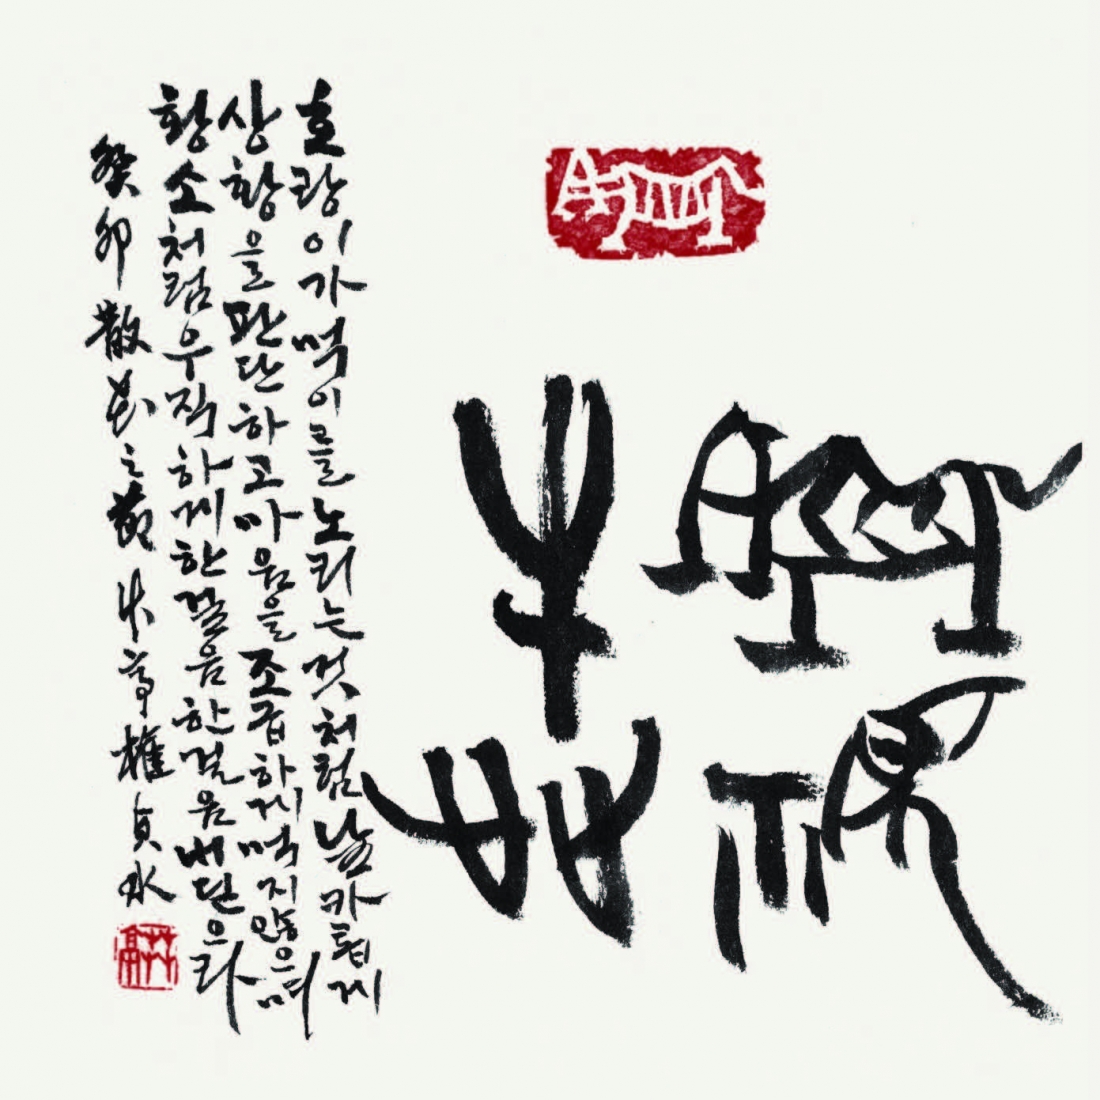 虎視
牛步
호랑이가 먹이를 노리는 것처럼 날카롭게
상황을 판단하고 마음을 조급하게 먹지 않으며
황소처럼 우직하게 한 걸음 한 걸음 내딛으라
癸卯 散花之節 亭 權貞